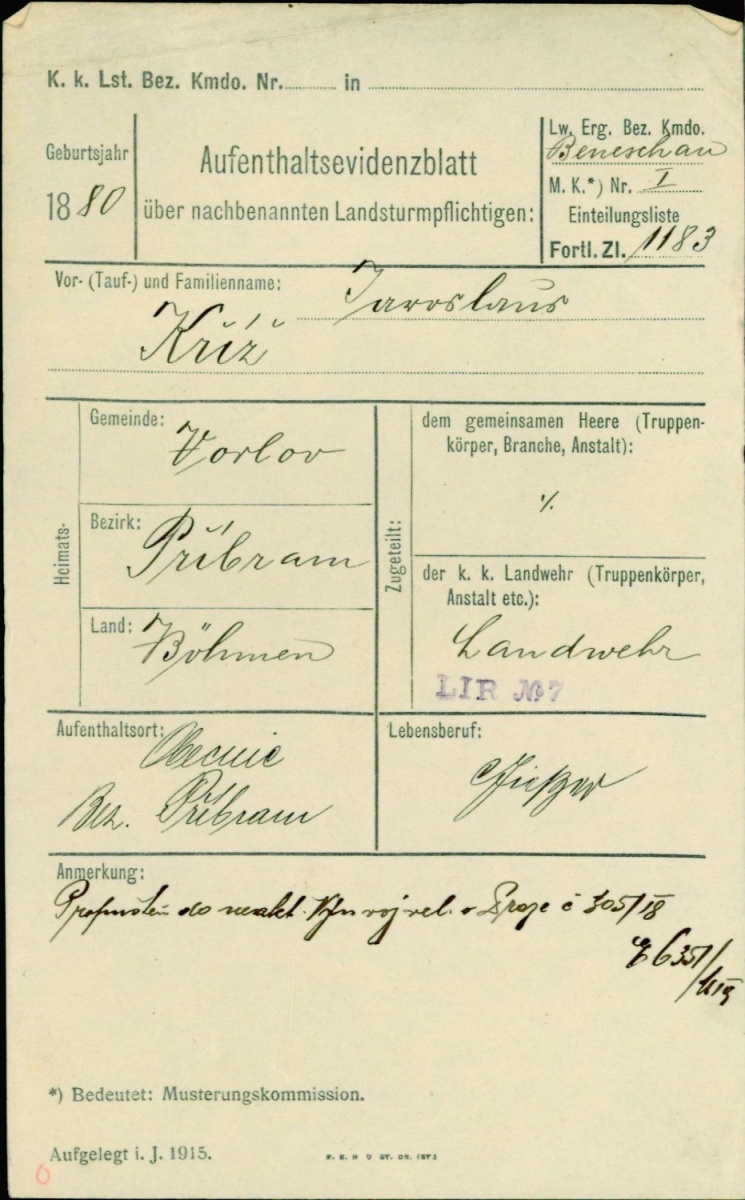 K. k. Lst. Bez. Kmdo. Nr. in
Geburtsjahr
1880
Aufenthaltsevidenzblatt
über nachbenannten Landsturmpflichtigen:
Lw. Erg. Bez. Kmdo.
Beneschau
M. K.*) Nr. I
Einteilungsliste
Fortl. Zl. 1183
Vor- (Tauf-) und Familienname: Jaroslaus
Kříž
Heimats-
Gemeinde:
Bezirk:
Příbram
Land:
Böhmen
Zugeteilt:
dem gemeinsamen Heere (Truppen-
körper, Branche, Anstalt):
%
der k. k. Landwehr (Truppenkörper,
Anstalt etc.):
Landwehr
LIR № 7
Aufenthaltsort:
Obecnic
Bez. Příbram
Lebensberuf:
Gießer
Anmerkung:
Propuštěn do voj. vel. v Praze č 305/18
*) Bedeutet: Musterungskommission.
Aufgelegt i. J. 1915.
6